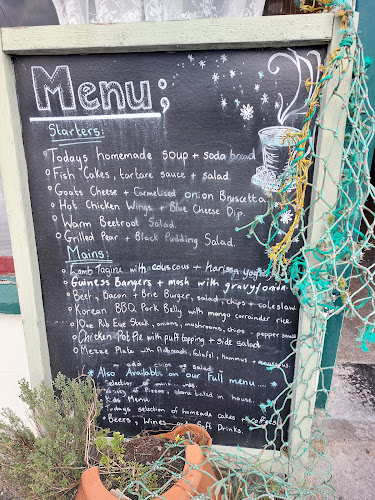 Menu;
Starters:
Todays homemade soup + soda bread
Fish Cakes, tartare sauce + salad.
Goats Cheese + Carmelised onion Bruscetta
Hot Chicken Wings + Blue Cheese Dip.
Warm Beetroot Salad.
Grilled Pear + Black Pudding Salad.
Mains:
Lamb Tagine with couscous + Harissa
Guiness Bangers + mash with gravy/onion
Beef, Bacon + Brie Burger, salad, chips + coleslaw
Korean BBQ Pork Belly with mango corriander rice
10oz Rib Eye Steak, onions, mushrooms, chips - pepper sauce
Chicken Pot Pie with puff topping + side salad
Mezze Plate with flatbreads, falafel, hummus +
chips - salad
* Also Available on our Full menu...*
Selection of
Selection of Pizzas, stone baked in house.
Kids Menu
Todays selection of homemade cakes + coffees
Beers, Wines or Soft Drinks.